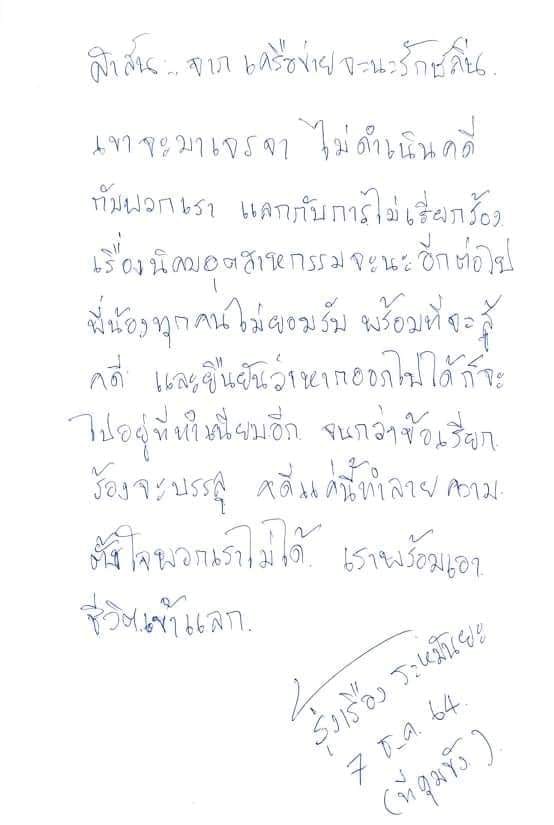 สาส์น.. จาก เครือข่ายจะนะรักษ์ถิ่น.
เขาจะมาเจรจา ไม่ดำเนินคดี
กับพวกเรา แลกกับการไม่เรียกร้อง
เรื่องนิคมอุตสาหกรรมจะนะอีกต่อไป
พี่น้องทุกคนไม่ยอมรับ พร้อมที่จะสู้
คดี และยืนยันว่าหากออกไปได้ก็จะ
ไปอยู่ที่ทำเนียบอีก จนกว่าข้อเรียก
ร้องจะบรรลุ คดีแค่นี้ทำลายความ
ตั้งใจพวกเราไม่ได้. เราพร้อมเอา
ชีวิตเข้าแลก.
รุ่งเรือง ระหมันยะ
7 ธ.ค. 64.
(ที่คุมขัง)